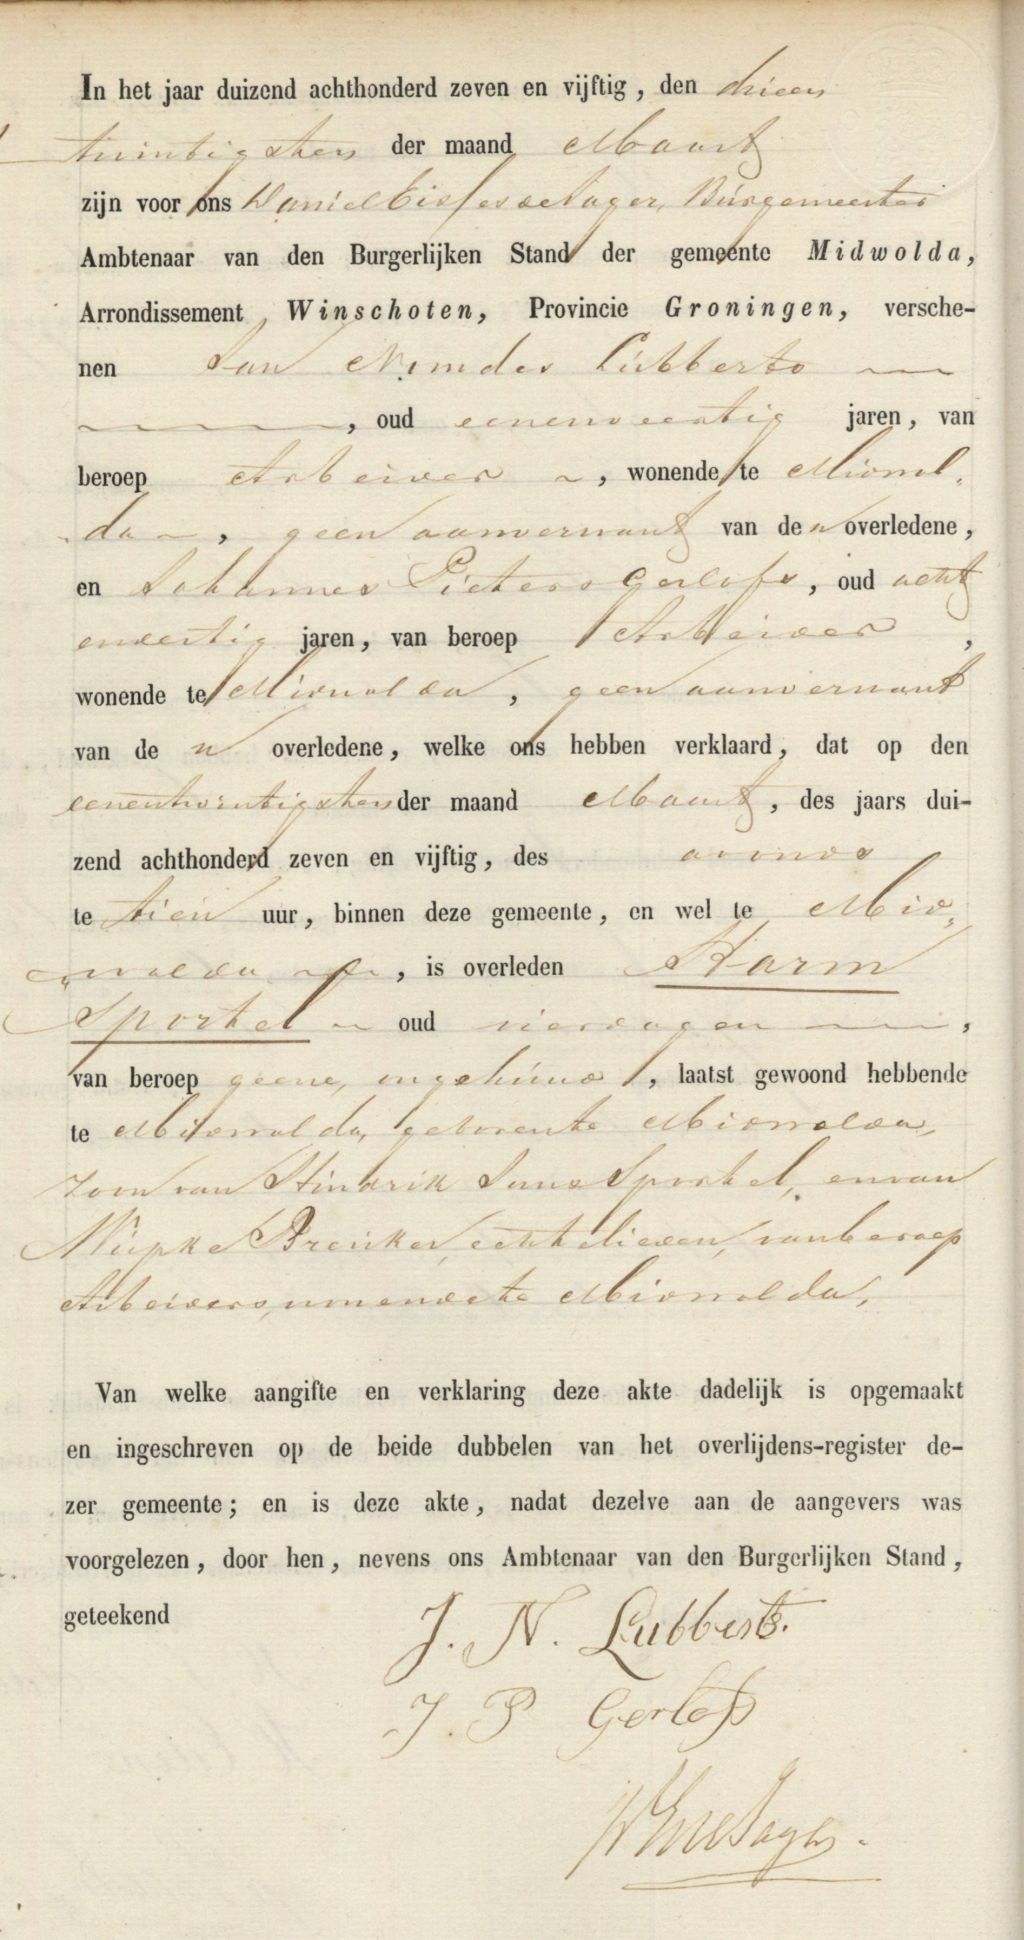 In het jaar duizend achthonderd zeven en vijftig, den drieen
twintigsten der maand Maart
zijn voor ons de Jager, Burgemeester
Ambtenaar van den Burgerlijken Stand der gemeente Midwolda,
Arrondissement Winschoten, Provincie Groningen, versche-
nen Jan Lubberts
, oud eenenveertig jaren, van
beroep Arbeider, wonende te Midwol-
da, geen aanverwant van de n overledene,
en Johannes Pieters Gerlofs, oud acht
enveertig jaren, van beroep Arbeider,
wonende te Midwolda, geen aanverwant
van de n overledene, welke ons hebben verklaard, dat op den
eenentwintigsten der maand Maart, des jaars dui-
zend achthonderd zeven en vijftig, des avonds
te tien uur, binnen deze gemeente, en wel te Mid-
wolda, is overleden Harm
Sportel oud vier dagen,
van beroep geene, ongehuwd, laatst gewoond hebbende
te Midwolda, geboren te Midwolda,
zoon van Hindrik Jans Sportel, en van
Breuker, echtelieden, van beroep
Arbeiders, wonende te Midwolda.
Van welke aangifte en verklaring deze akte dadelijk is opgemaakt
en ingeschreven op de beide dubbelen van het overlijdens-register de-
zer gemeente; en is deze akte, nadat dezelve aan de aangevers was
voorgelezen, door hen, nevens ons Ambtenaar van den Burgerlijken Stand,
geteekend J. N. Lubberts.
J. P Gerlofs
de Jager